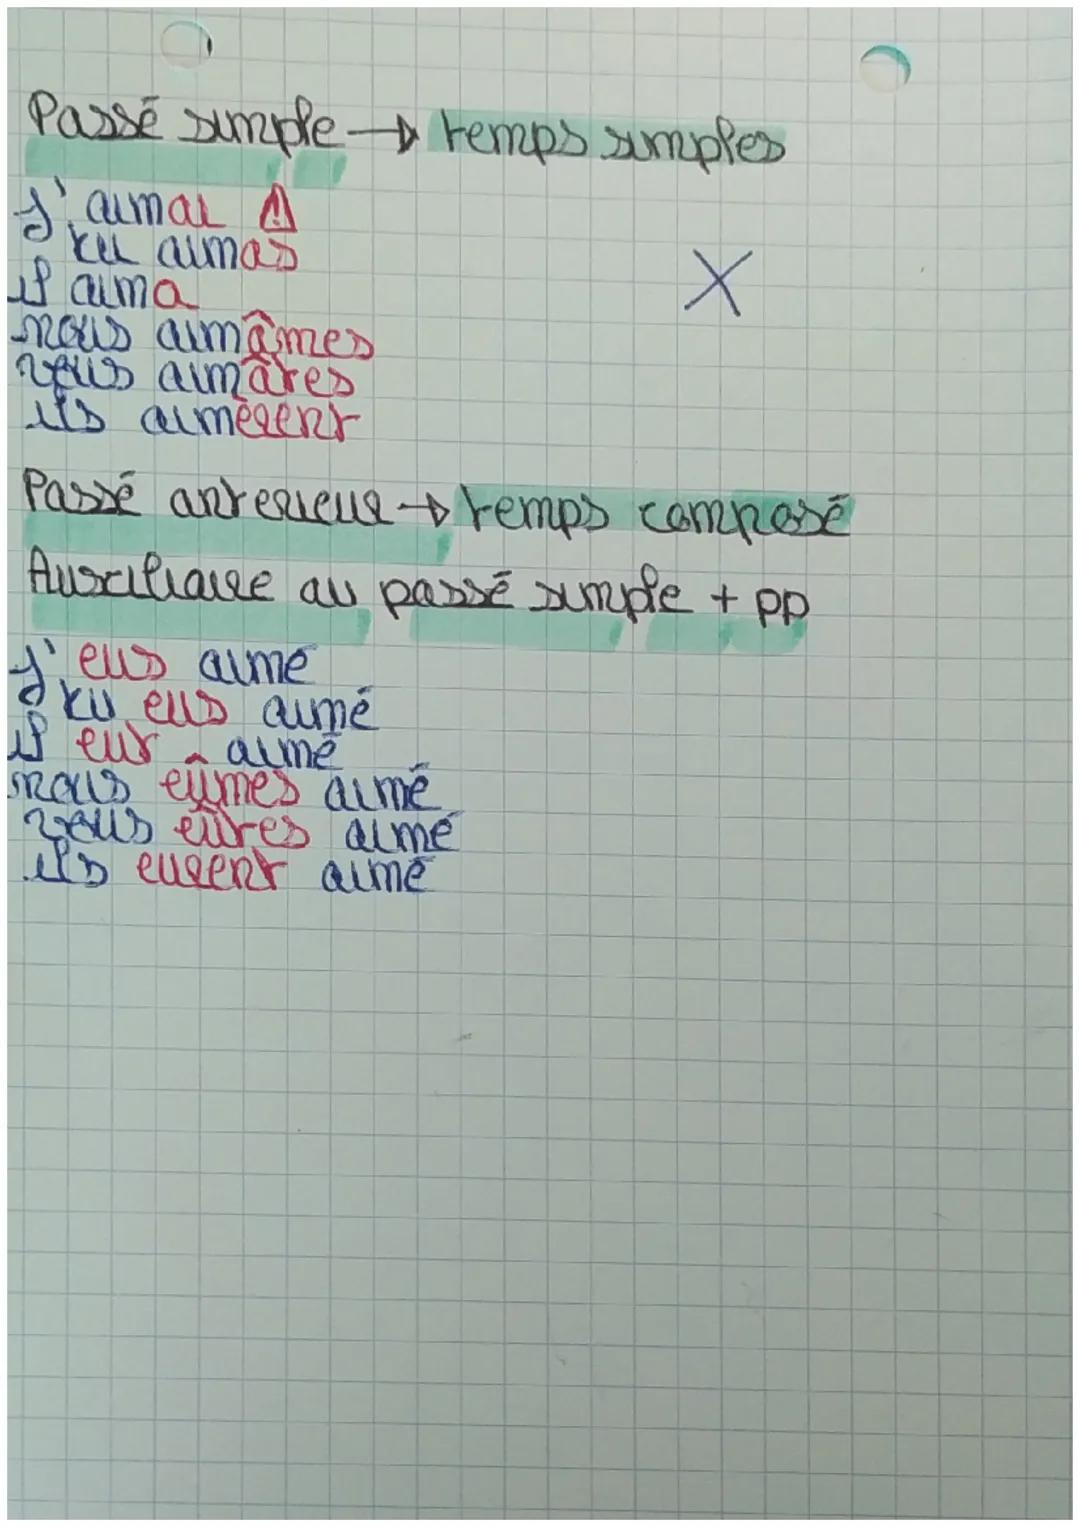 Passé simple → temps simples
j'aimai ⚠
tu aimas
il aima
X
nous aimâmes
vous aimâtes
ils aimèrent
Passé anterieur → temps composé
Auxiliaire au passé simple + pp
j'eus aimé
tu eus aimé
il eut aimé
nous eûmes aimé
vous eûtes aimé
ils eurent aimé